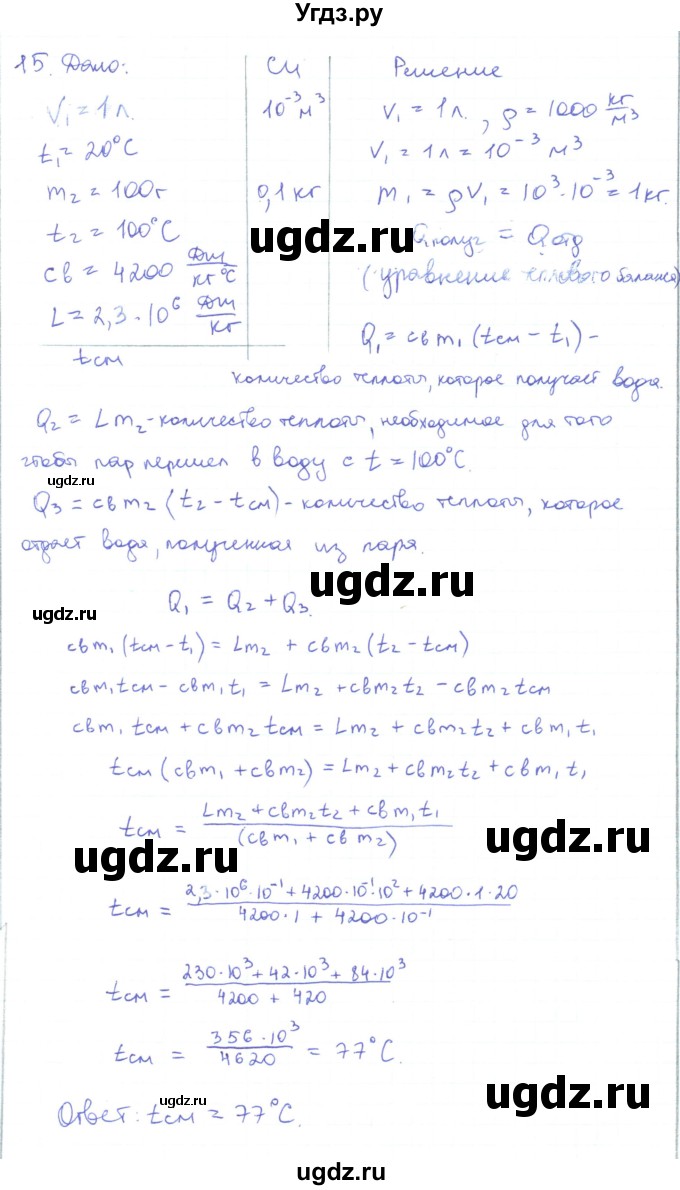 Угдз.ру
15. Дано:
V₁ = 1 л.
t₁ = 20°C
m₂ = 100г
t₂ = 100°C
cв = 4200 Дж/кг°C
L = 2,3·10⁶ Дж/кг
tсм
СИ
10⁻³ м³
0,1 кг
Решение
V₁ = 1 л. , ρ = 1000 кг/м³
V₁ = 1 л = 10⁻³ м³
m₁ = ρV₁ = 10³·10⁻³ = 1 кг.
Qполуг = Qотд
(уравнение теплового баланса)
Q₁ = cвm₁(tсм − t₁) −
количество теплоты, которое получает вода.
Q₂ = Lm₂ - количество теплоты, необходимое для того
чтобы пар перешел в воду с t = 100°C.
Q₃ = cвm₂(t₂ − tсм) - количество теплоты, которое
отдает вода, полученная из пара.
Q₁ = Q₂ + Q₃.
cвm₁(tсм − t₁) = Lm₂ + cвm₂(t₂ − tсм)
cвm₁tсм − cвm₁t₁ = Lm₂ + cвm₂t₂ − cвm₂tсм
cвm₁tсм + cвm₂tсм = Lm₂ + cвm₂t₂ + cвm₁t₁
tсм(cвm₁ + cвm₂) = Lm₂ + cвm₂t₂ + cвm₁t₁
tсм = Lm₂ + cвm₂t₂ + cвm₁t₁ / (cвm₁ + cвm₂)
tсм = 2,3·10⁶·10⁻¹ + 4200·10⁻¹·10² + 4200·1·20 / 4200·1 + 4200·10⁻¹
tсм = 230·10³ + 42·10³ + 84·10³ / 4200 + 420
tсм = 356·10³ / 4620 = 77°C.
Ответ: tсм = 77°C.
ugdz.ru
ugdz.ru
ugdz.ru
ugdz.ru
ugdz.ru
ugdz.ru
ugdz.ru
ugdz.ru
ugdz.ru
ugdz.ru
ugdz.ru